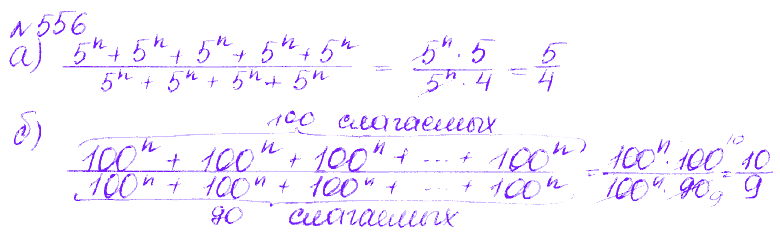 №556
а) (5ⁿ + 5ⁿ + 5ⁿ + 5ⁿ + 5ⁿ)/(5ⁿ + 5ⁿ + 5ⁿ + 5ⁿ) = (5ⁿ · 5)/(5ⁿ · 4) = 5/4
100 слагаемых
б) (100ⁿ + 100ⁿ + 100ⁿ + ... + 100ⁿ)/(100ⁿ + 100ⁿ + 100ⁿ + ... + 100ⁿ) = (100ⁿ · 100 10)/(100ⁿ · 90 9) = 10/9
90 слагаемых